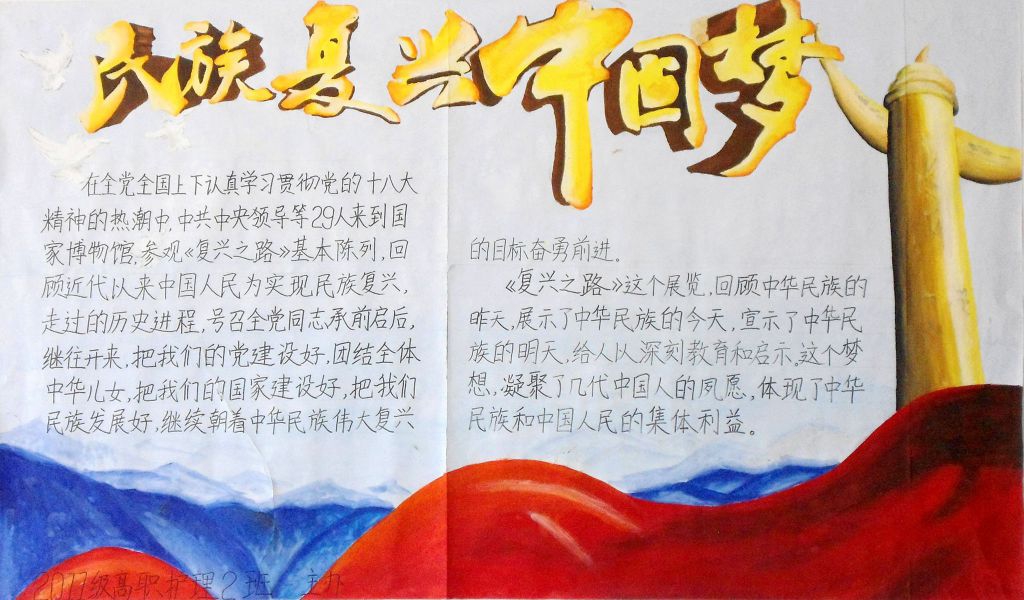 民族复兴中国梦
在全党全国上下认真学习贯彻党的十八大
精神的热潮中,中共中央领导等29人来到国
家博物馆,参观《复兴之路》基本陈列,回
顾近代以来中国人民为实现民族复兴,
走过的历史进程,号召全党同志承前启后,
继往开来,把我们的党建设好,团结全体
中华儿女,把我们的国家建设好,把我们
民族发展好,继续朝着中华民族伟大复兴
的目标奋勇前进。
《复兴之路》这个展览,回顾中华民族的
昨天,展示了中华民族的今天,宣示了中华民
族的明天,给人以深刻教育和启示。这个梦
想,凝聚了几代中国人的夙愿,体现了中华
民族和中国人民的集体利益。
2011级高职护理2班 主办